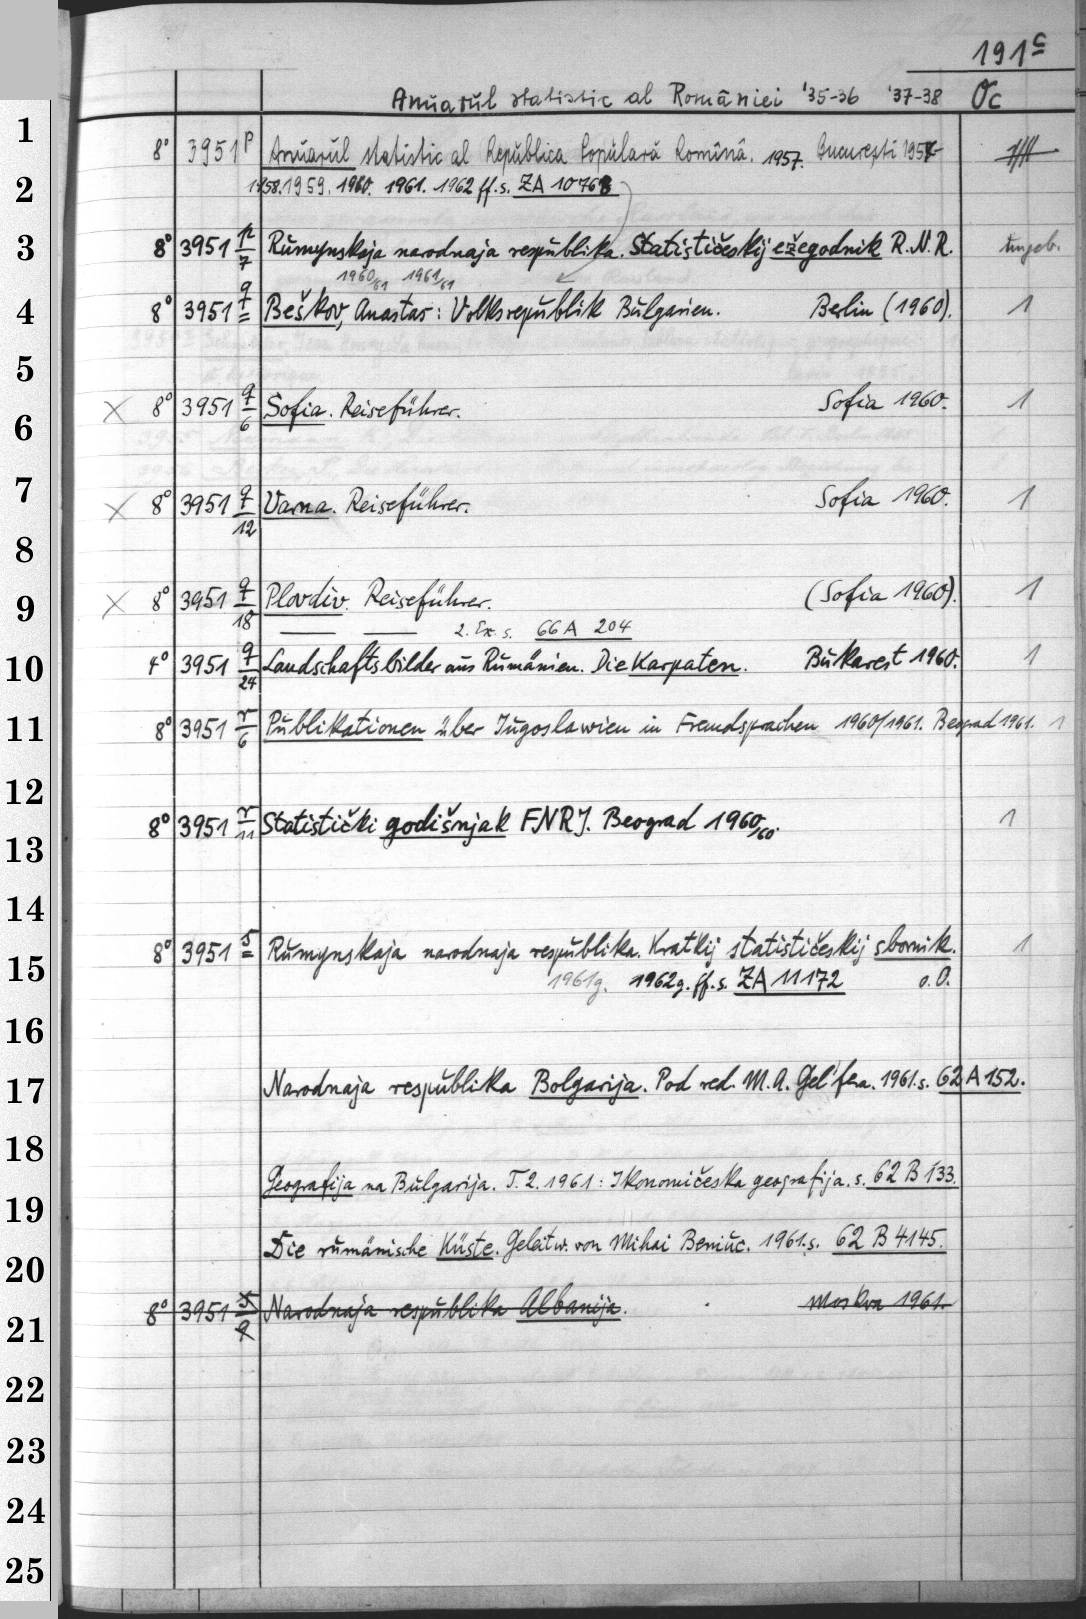 191c
Anuarul statistic al României '35-36 '37-38 Oc
1
8° 3951 p Anuarul statistic al Republica Populară Română. 1957. București 1957
2
1958. 1959. 1960. 1961. 1962 ff. s. ZA 10768
3
8° 3951 p/7 Rumynskaja narodnaja respublika. Statističeskij ežegodnik R.N.R. ungeb.
1960/61 1961/61
4
8° 3951 q Beškov, Anastas: Volksrepublik Bulgarien. Berlin (1960). 1
5
6
X 8° 3951 q/6 Sofia. Reiseführer. Sofia 1960. 1
7
X 8° 3951 q/12 Varna. Reiseführer. Sofia 1960. 1
8
9
X 8° 3951 q/18 Plovdiv. Reiseführer. (Sofia 1960). 1
— — 2. Ex. s. 66 A 204
10
4° 3951 q/24 Landschaftsbilder aus Rumänien. Die Karpaten. Bukarest 1960. 1
11
8° 3951 r/6 Publikationen über Jugoslawien in Fremdsprachen 1960/1961. Beograd 1961. 1
12
13
8° 3951 r/11 Statistički godišnjak FNRJ. Beograd 1960/60. 1
14
15
8° 3951 s Rumynskaja narodnaja respublika. Kratkij statističeskij sbornik. 1
1961g. 1962g. ff. s. ZA 11172 o.O.
16
17
Narodnaja respublika Bolgarija. Pod red. M.A. Gel'fera. 1961. s. 62 A 152.
18
19
Geografija na Bulgarija. T. 2. 1961: Ikonomičeska geografija. s. 62 B 133.
20
Die rumänische Küste. Geleitw. von Mihai Beniuc. 1961. s. 62 B 4145.
21
8° 3951 s/9 Narodnaja respublika Albanija. Moskva 1961.
22
23
24
25